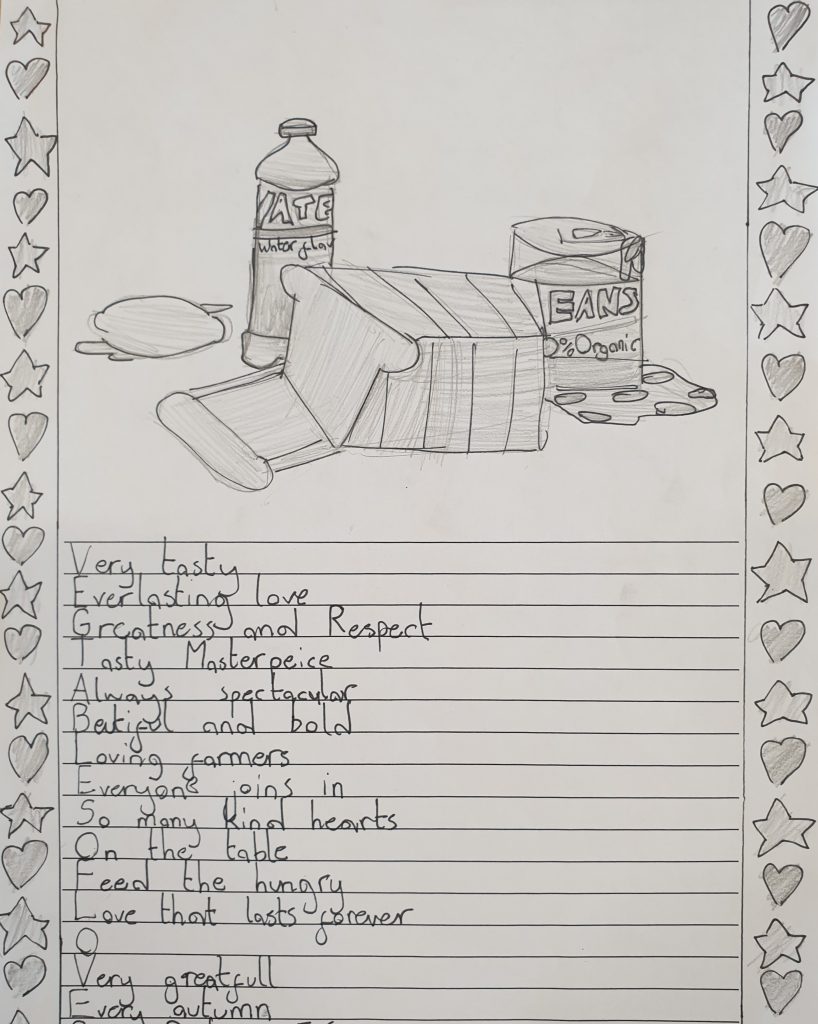 VATE
Water flav
EANS
0% Organic
Very tasty
Everlasting love
Greatness and Respect
Tasty Masterpeice
Always spectacular
Beutiful and bold
Loving farmers
Everyone joins in
So many kind hearts
On the table
Feed the hungry
Love that lasts forever
O
Very greatfull
Every autumn